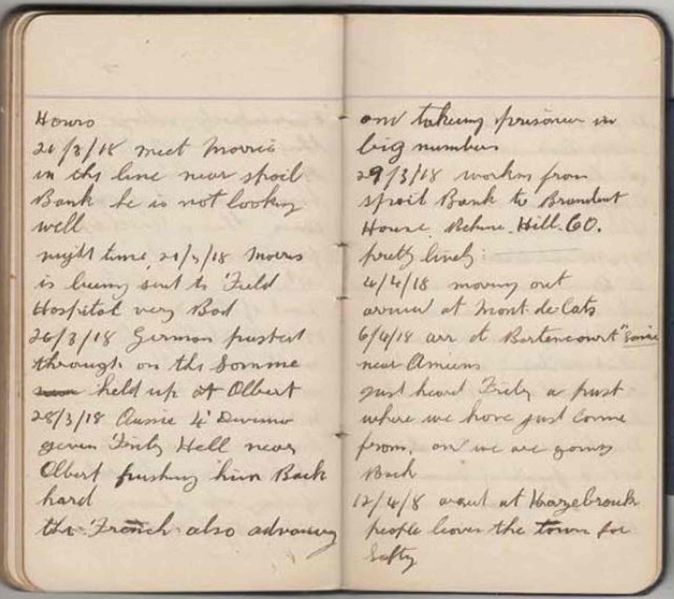 Hours
21/3/18 meet Morris
in ths line near spoil
Bank he is not looking
well
night time 21/3/18 Morris
is being sent to Field
Hospital very Bad
26/3/18 German pushed
through on ths Somme
held up at Olbert
28/3/18 Aussie 4 Division
given Fritz Hell near
Olbert pushing him Back
hard
ths French also advancing
and taking prisoner in
big numbers
29/3/18 working from
spoil Bank to
House Hill 60.
pretty lively
4/4/18 moving out
arrived at Mont de Cats
6/4/18 arr at Bertencourt
near Amiens
just heard Fritz a push
where we have just come
from, and we are going
Back
12/4/8 arout at Hazebrouk
people leaves the town for
Safty